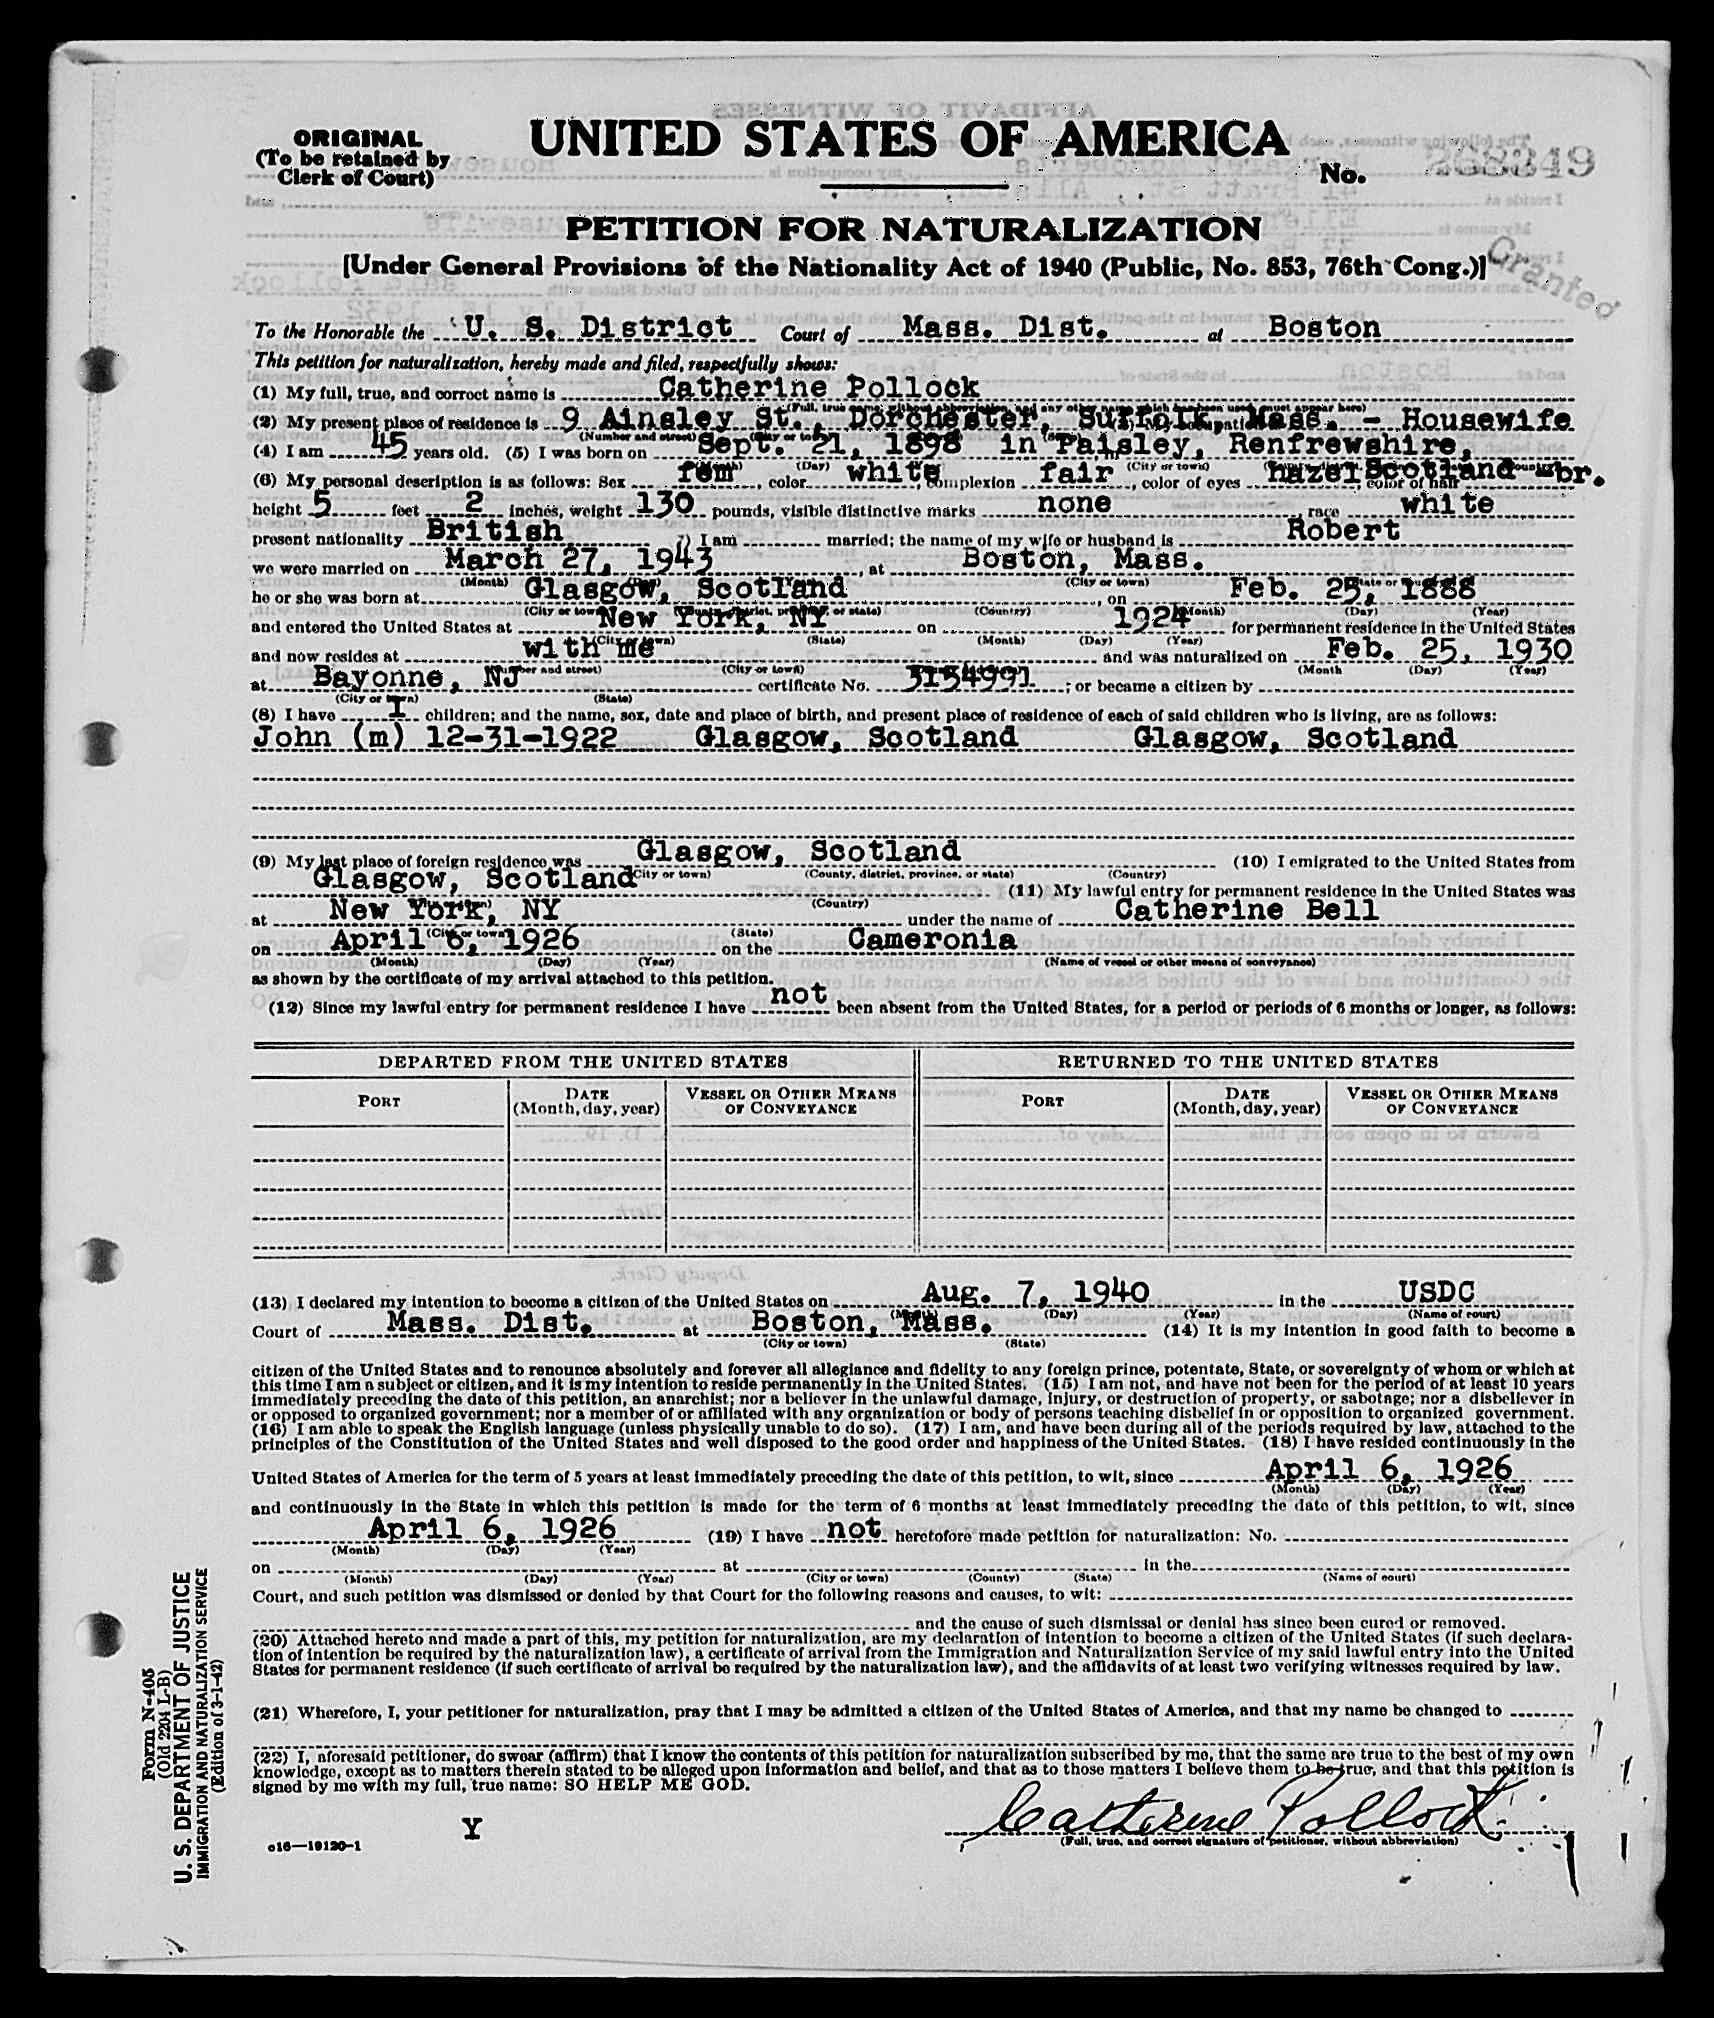 ORIGINAL
(To be retained by
Clerk of Court)
UNITED STATES OF AMERICA
No. 268349
PETITION FOR NATURALIZATION
[Under General Provisions of the Nationality Act of 1940 (Public, No. 853, 76th Cong.)]
Granted
To the Honorable the U. S. District Court of Mass. Dist. at Boston
This petition for naturalization, hereby made and filed, respectfully shows:
(1) My full, true, and correct name is Catherine Pollock
(Full, true name, without abbreviation, and any other name which has been used, must appear here)
(2) My present place of residence is 9 Ainsley St., Dorchester, Suffolk, Mass. - Housewife
(Number and street) (City or town)
(4) I am 45 years old. (5) I was born on Sept. 21, 1898 in Paisley, Renfrewshire,
(Day) (City or town)
(6) My personal description is as follows: Sex fem, color white, complexion fair, color of eyes hazel Scotland, color of hair -br.
height 5 feet 2 inches, weight 130 pounds, visible distinctive marks none, race white
present nationality British (7) I am married; the name of my wife or husband is Robert
we were married on March 27, 1943, at Boston, Mass.
(Month) (City or town) (State or
he or she was born at Glasgow, Scotland, on Feb. 25, 1888
(City or town) (County, district, province, or state) (Country) (Month) (Day) (Year)
and entered the United States at New York, NY on 1924 for permanent residence in the United States
(City or town) (State) (Month) (Day) (Year)
and now resides at with me and was naturalized on Feb. 25, 1930
(Number and street) (City or town) (Month (Day) (Year)
at Bayonne, NJ certificate No. 3154991; or became a citizen by
(City or town) (State)
(8) I have 1 children; and the name, sex, date and place of birth, and present place of residence of each of said children who is living, are as follows:
John (m) 12-31-1922 Glasgow, Scotland Glasgow, Scotland
(9) My last place of foreign residence was Glasgow, Scotland (10) I emigrated to the United States from
(City or town) (County, district, province, or state) (Country)
Glasgow, Scotland (11) My lawful entry for permanent residence in the United States was
(Country)
at New York, NY under the name of Catherine Bell
(City or town) (State)
on April 6, 1926 on the Cameronia
(Month) (Day) (Year) (Name of vessel or other means of conveyance)
as shown by the certificate of my arrival attached to this petition.
(12) Since my lawful entry for permanent residence I have not been absent from the United States, for a period or periods of 6 months or longer, as follows:
DEPARTED FROM THE UNITED STATES RETURNED TO THE UNITED STATES
PORT DATE (Month, day, year) VESSEL OR OTHER MEANS OF CONVEYANCE PORT DATE (Month, day, year) VESSEL OR OTHER MEANS OF CONVEYANCE
(13) I declared my intention to become a citizen of the United States on Aug. 7, 1940 in the USDC
(Month) (Day) (Year) (Name of court)
Court of Mass. Dist. at Boston, Mass. (14) It is my intention in good faith to become a
(City or town) (State)
citizen of the United States and to renounce absolutely and forever all allegiance and fidelity to any foreign prince, potentate, State, or sovereignty of whom or which at
this time I am a subject or citizen, and it is my intention to reside permanently in the United States. (15) I am not, and have not been for the period of at least 10 years
immediately preceding the date of this petition, an anarchist; nor a believer in the unlawful damage, injury, or destruction of property, or sabotage; nor a disbeliever in
or opposed to organized government; nor a member of or affiliated with any organization or body of persons teaching disbelief in or opposition to organized government.
(16) I am able to speak the English language (unless physically unable to do so). (17) I am, and have been during all of the periods required by law, attached to the
principles of the Constitution of the United States and well disposed to the good order and happiness of the United States. (18) I have resided continuously in the
United States of America for the term of 5 years at least immediately preceding the date of this petition, to wit, since April 6, 1926
(Month) (Day) (Year)
and continuously in the State in which this petition is made for the term of 6 months at least immediately preceding the date of this petition, to wit, since
April 6, 1926 (19) I have not heretofore made petition for naturalization: No.
(Month) (Day) (Year)
on at in the
(Month) (Day) (Year) (City or town) (County) (State) (Name of court)
Court, and such petition was dismissed or denied by that Court for the following reasons and causes, to wit:
and the cause of such dismissal or denial has since been cured or removed.
(20) Attached hereto and made a part of this, my petition for naturalization, are my declaration of intention to become a citizen of the United States (if such declara-
tion of intention be required by the naturalization law), a certificate of arrival from the Immigration and Naturalization Service of my said lawful entry into the United
States for permanent residence (if such certificate of arrival be required by the naturalization law), and the affidavits of at least two verifying witnesses required by law.
(21) Wherefore, I, your petitioner for naturalization, pray that I may be admitted a citizen of the United States of America, and that my name be changed to
(22) I, aforesaid petitioner, do swear (affirm) that I know the contents of this petition for naturalization subscribed by me, that the same are true to the best of my own
knowledge, except as to matters therein stated to be alleged upon information and belief, and that as to those matters I believe them to be true, and that this petition is
signed by me with my full, true name: SO HELP ME GOD.
Catherine Pollock
(Full, true, and correct signature of petitioner, without abbreviation)
Y
c16—19120-1
Form N-405
(Old 2204 L-B)
U. S. DEPARTMENT OF JUSTICE
IMMIGRATION AND NATURALIZATION SERVICE
(Edition of 3-1-42)